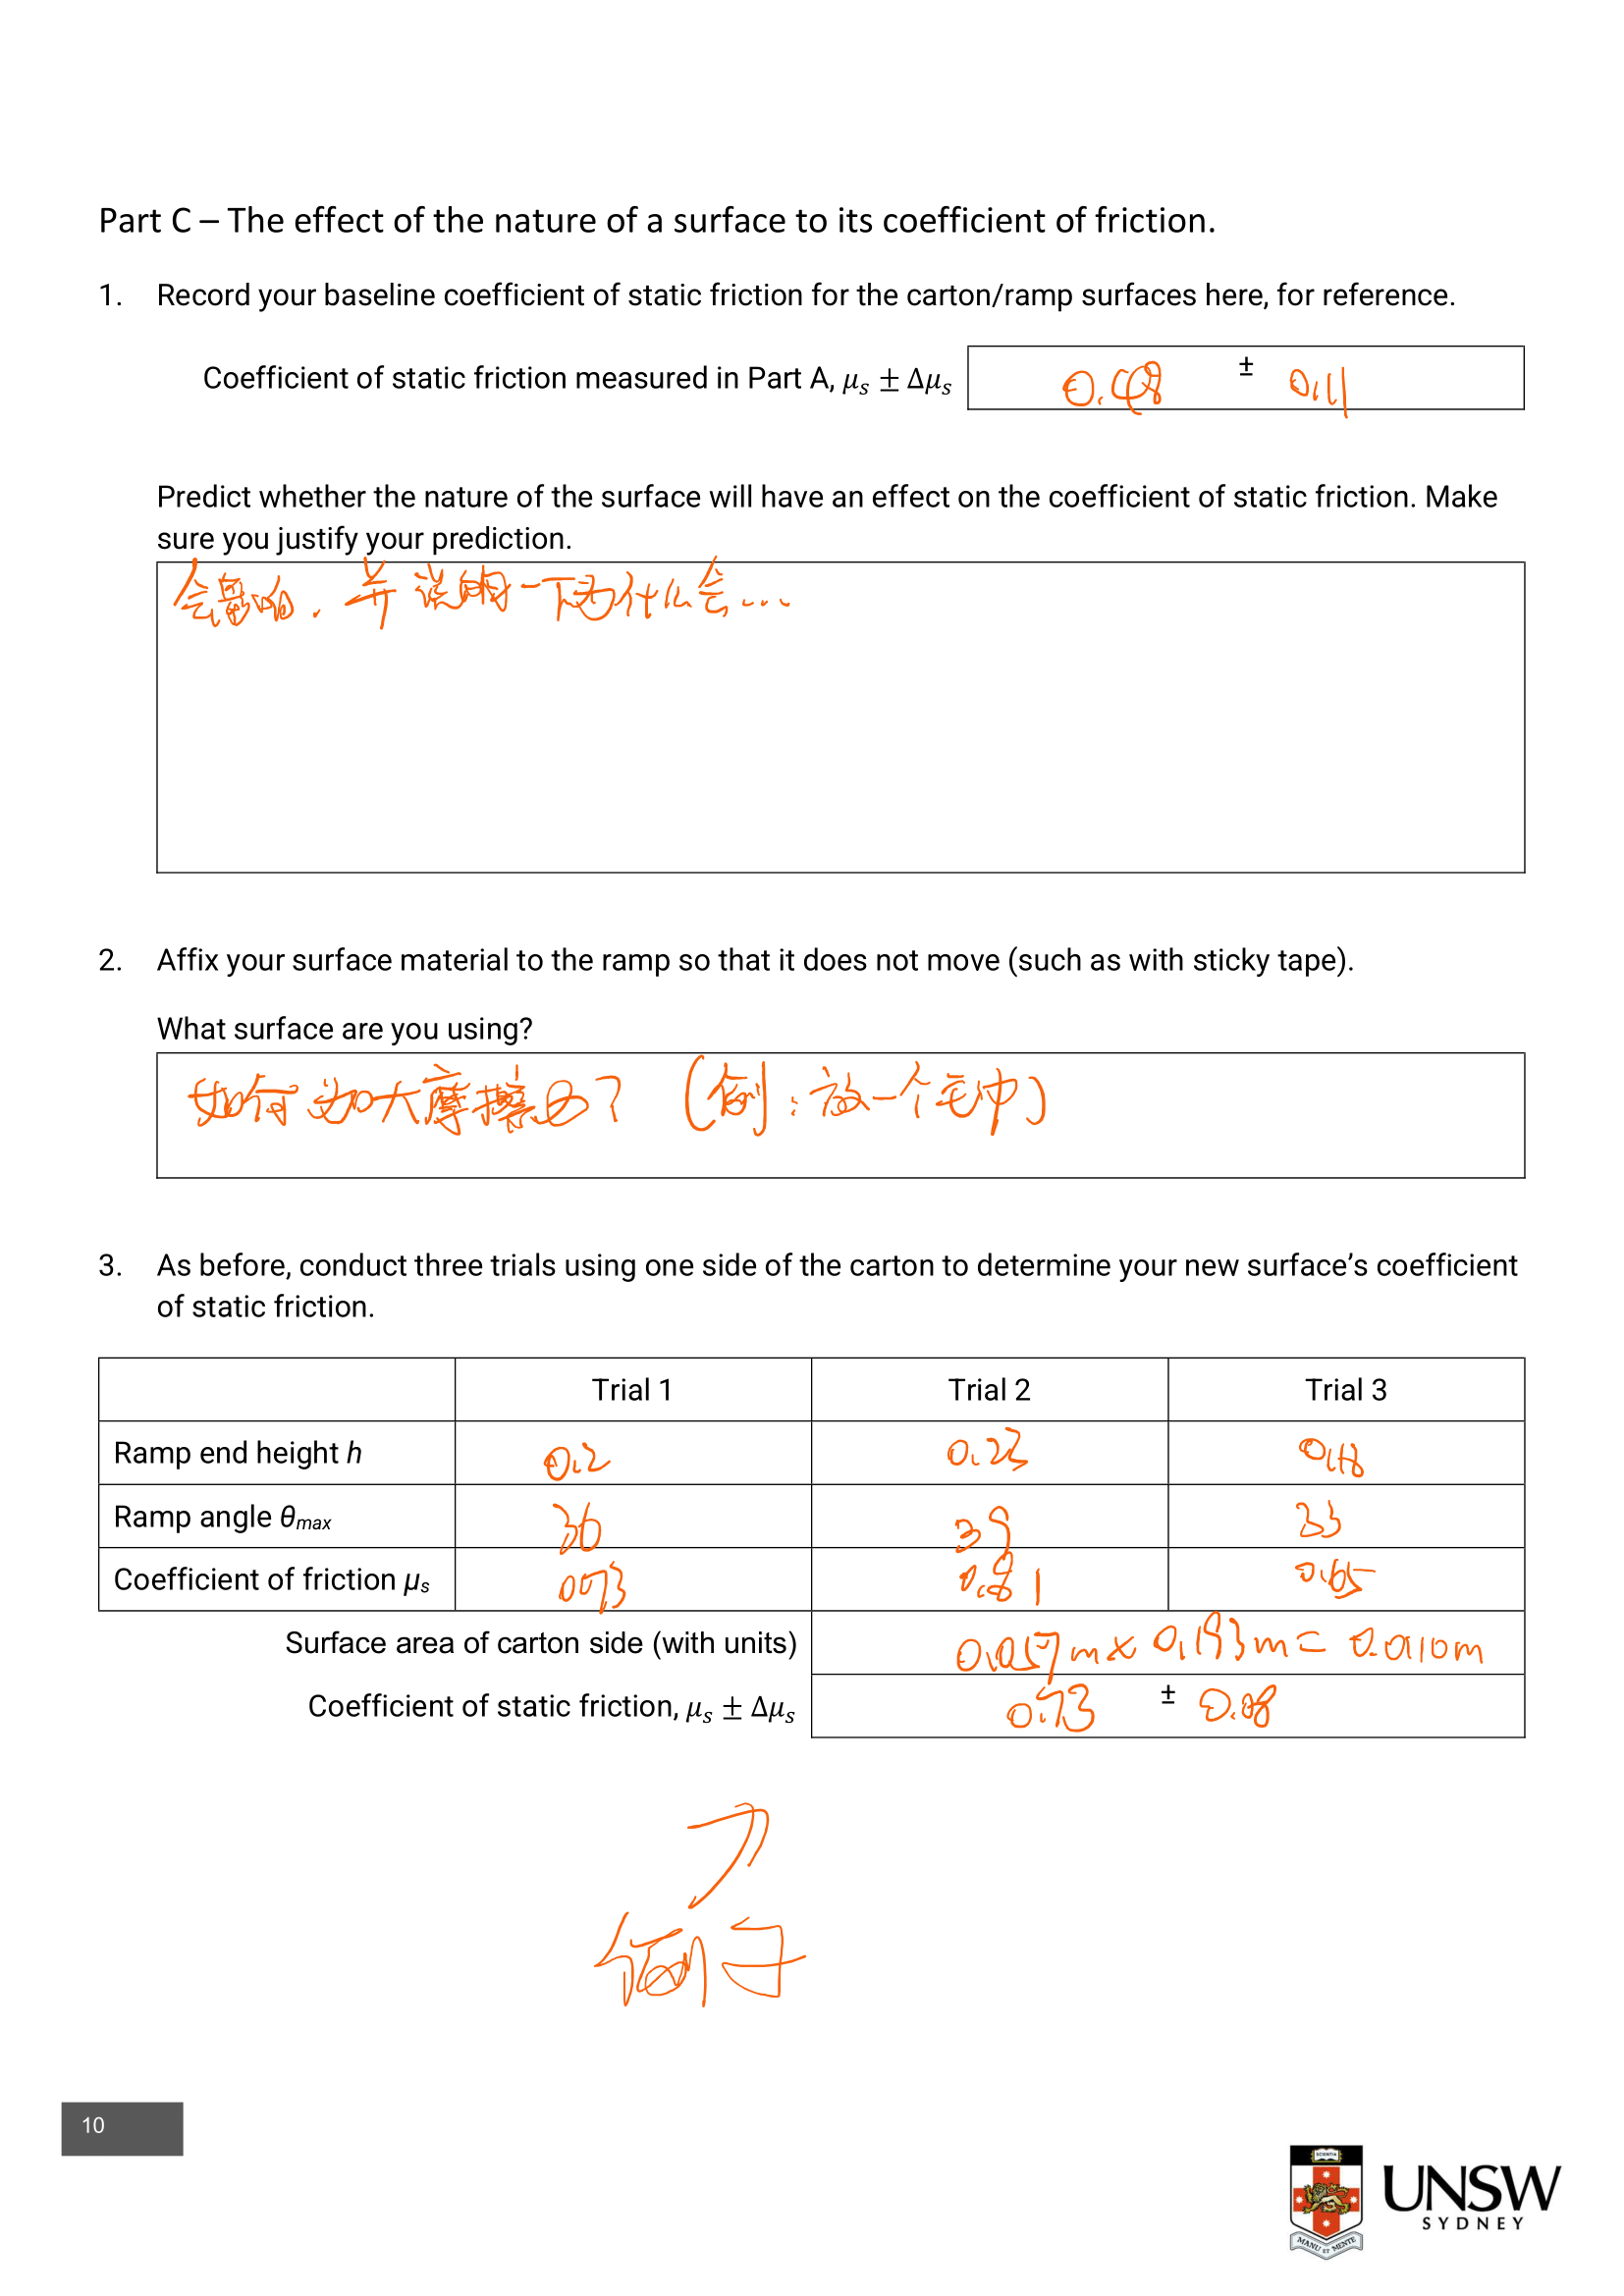 Part C – The effect of the nature of a surface to its coefficient of friction.
1. Record your baseline coefficient of static friction for the carton/ramp surfaces here, for reference.
Coefficient of static friction measured in Part A, μs ± Δμs 0.48 ± 0.11
Predict whether the nature of the surface will have an effect on the coefficient of static friction. Make
sure you justify your prediction.
会影响. 并说明一下为什么会...
2. Affix your surface material to the ramp so that it does not move (such as with sticky tape).
What surface are you using?
如何加大摩擦力? (例: 放一个毛巾)
3. As before, conduct three trials using one side of the carton to determine your new surface’s coefficient
of static friction.
Trial 1 Trial 2 Trial 3
Ramp end height h 0.2 0.23 0.18
Ramp angle θmax 36 39 33
Coefficient of friction μs 0.73 0.81 0.65
Surface area of carton side (with units) 0.057m x 0.193m = 0.0110m
Coefficient of static friction, μs ± Δμs 0.73 ± 0.08
例子
10
SCIENTIA
MANU ET MENTE
UNSW
SYDNEY